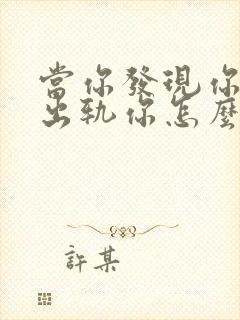 當你發現你
出軌你怎麼
許某